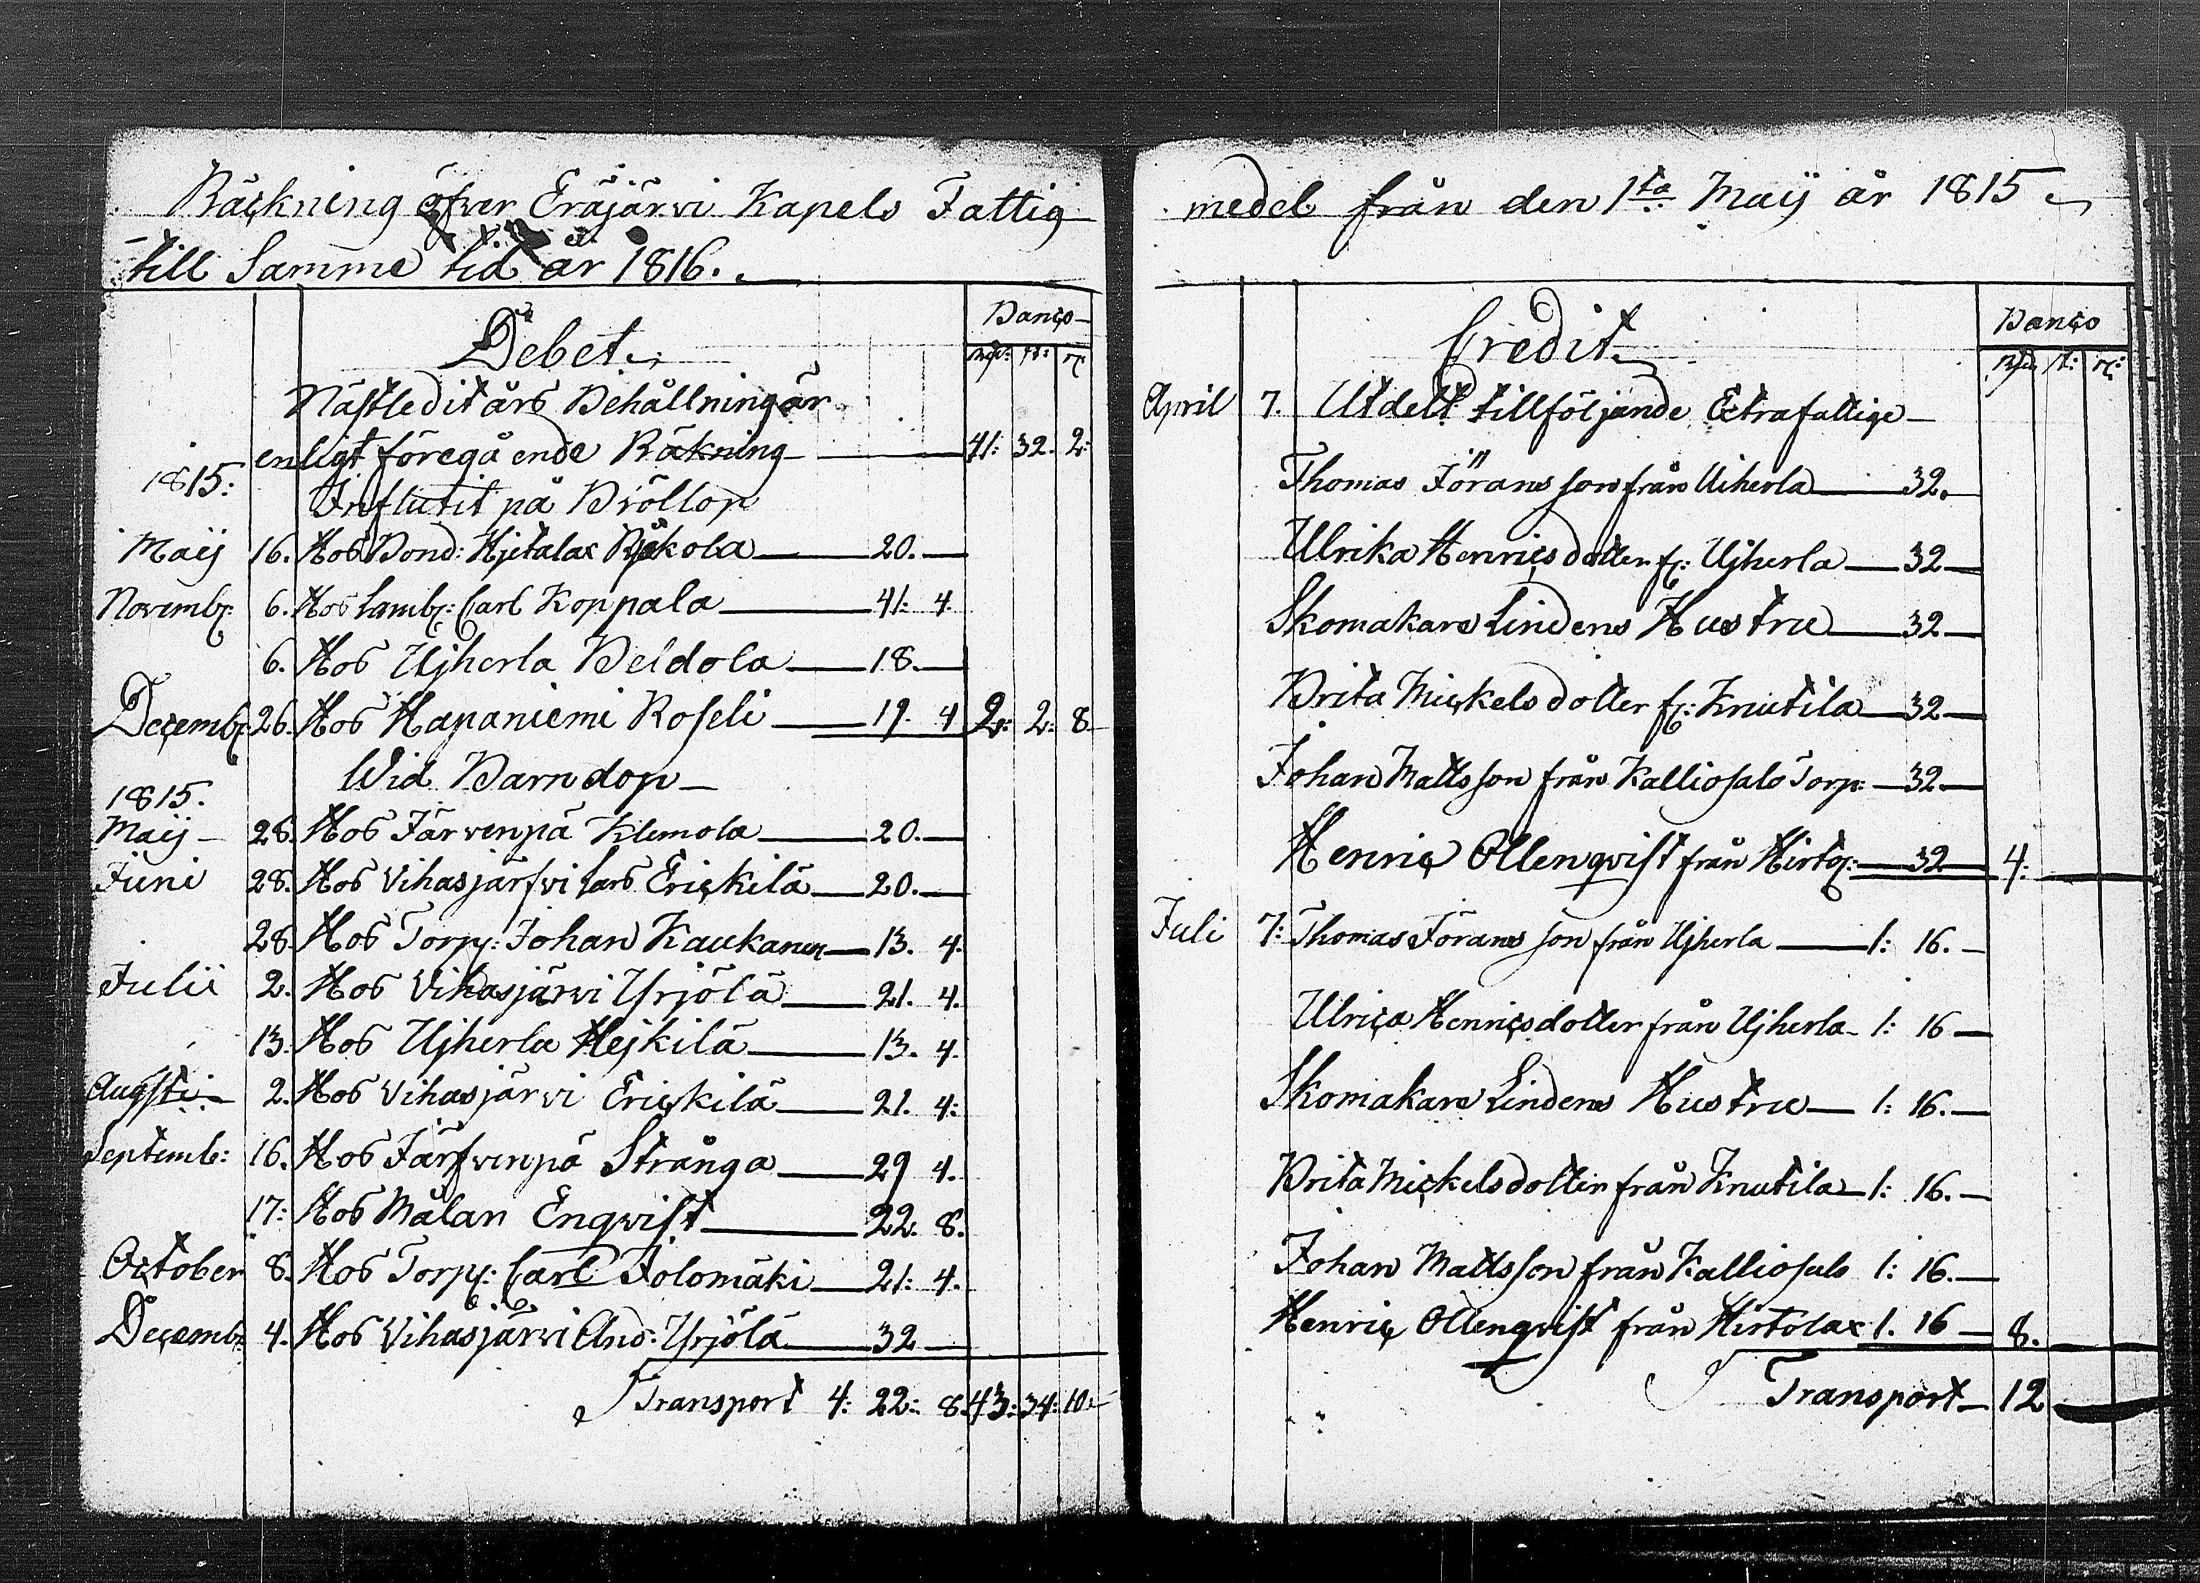 Räckning öfver Eräjärvi Kapels Fattig
till Samme tid år 1816.
Banco
Debet
Rdr: st: r:
Nästledit års Behållning är
enligt föregå ende Räkning 41: 32. 2:
1815:
Influtit på Bröllop
Maij 16. Hos Bond: Hjetalax 20.
Novembr: 6. Hos Lambr: Carl Koppala 41: 4.
6. Hos Ujherla Beldola 18.
Decembr: 26. Hos Hapaniemi Roseli 19. 4 2: 2: 8
Wid Barndop
1815.
Maij 28. Hos Järvenpä Klemola 20.
Juni 28. Hos Vihasjärfvi Lars Erickilä 20.
28. Hos Torp: Johan Kaukanen 13. 4.
Julii 2. Hos Vihasjärvi Yrjölä 21. 4.
13. Hos Ujherla Hejkilä 13. 4.
Augsti 2. Hos Vihasjärvi Erickilä 21. 4:
Septemb: 16. Hos Järfvenpä Strånga 29 4.
17: Hos Målan Enqvist 22. 8.
October 8. Hos Torp: Carl Jolomäki 21: 4.
Decembr 4. Hos Vihasjärvi And: Yrjölä 32
Transport 4: 22: 8. 43: 34: 10.
medel från den 1sta Maij år 1815
Banco
Credit
Rdr st: r:
April 7. Utdelt till följande Extrafattige
Thomas Jöransson från Uiherla 32.
Ulrika Henricsdotter fr: Ujherla 32
Skomakare Lindens Hustru 32
Brita Mickelsdotter fr: Knutila 32
Johan Mattsson från Kalliosalo Torp: 32
Henric Ollenqvist från Hirtol: 32 4:
Juli 7: Thomas Jöransson från Ujherla 1: 16.
Ulrica Henricsdotter från Ujherla 1: 16
Skomakare Lindens Hustru 1: 16.
Brita Mickelsdotter från Knutila 1: 16.
Johan Mattsson från Kalliosalo 1: 16.
Henric Ollenqvist från Hirtolax 1. 16 8.
Transport 12